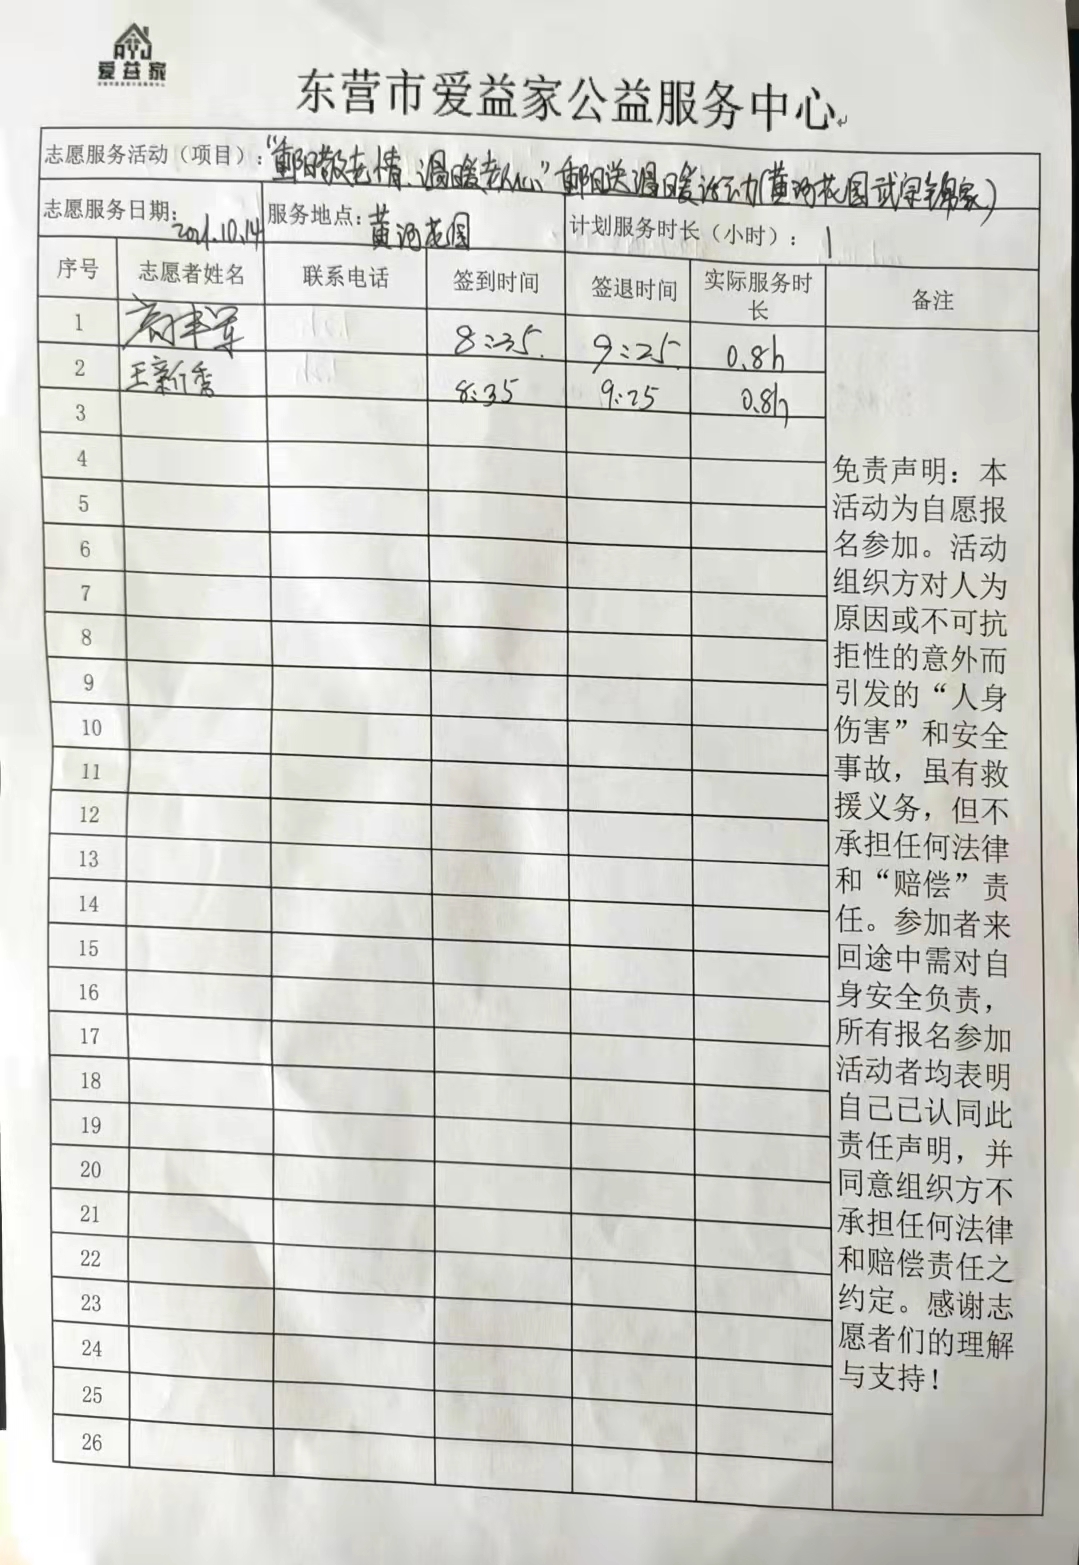 AYJ
爱益家
东营市爱益家公益服务中心
志愿服务活动（项目）：“重阳敬老情、温暖老人心”重阳送温暖活动(黄河花园武宗锦家)
志愿服务日期：2021.10.14 服务地点：黄河花园 计划服务时长（小时）：1
序号 志愿者姓名 联系电话 签到时间 签退时间 实际服务时长 备注
1 8:35 9:25 0.8h
2 王新香 8:35 9:25 0.8h
3
4
5
6
7
8
9
10
11
12
13
14
15
16
17
18
19
20
21
22
23
24
25
26
免责声明：本
活动为自愿报
名参加。活动
组织方对人为
原因或不可抗
拒性的意外而
引发的“人身
伤害”和安全
事故，虽有救
援义务，但不
承担任何法律
和“赔偿”责
任。参加者来
回途中需对自
身安全负责，
所有报名参加
活动者均表明
自己已认同此
责任声明，并
同意组织方不
承担任何法律
和赔偿责任之
约定。感谢志
愿者们的理解
与支持！